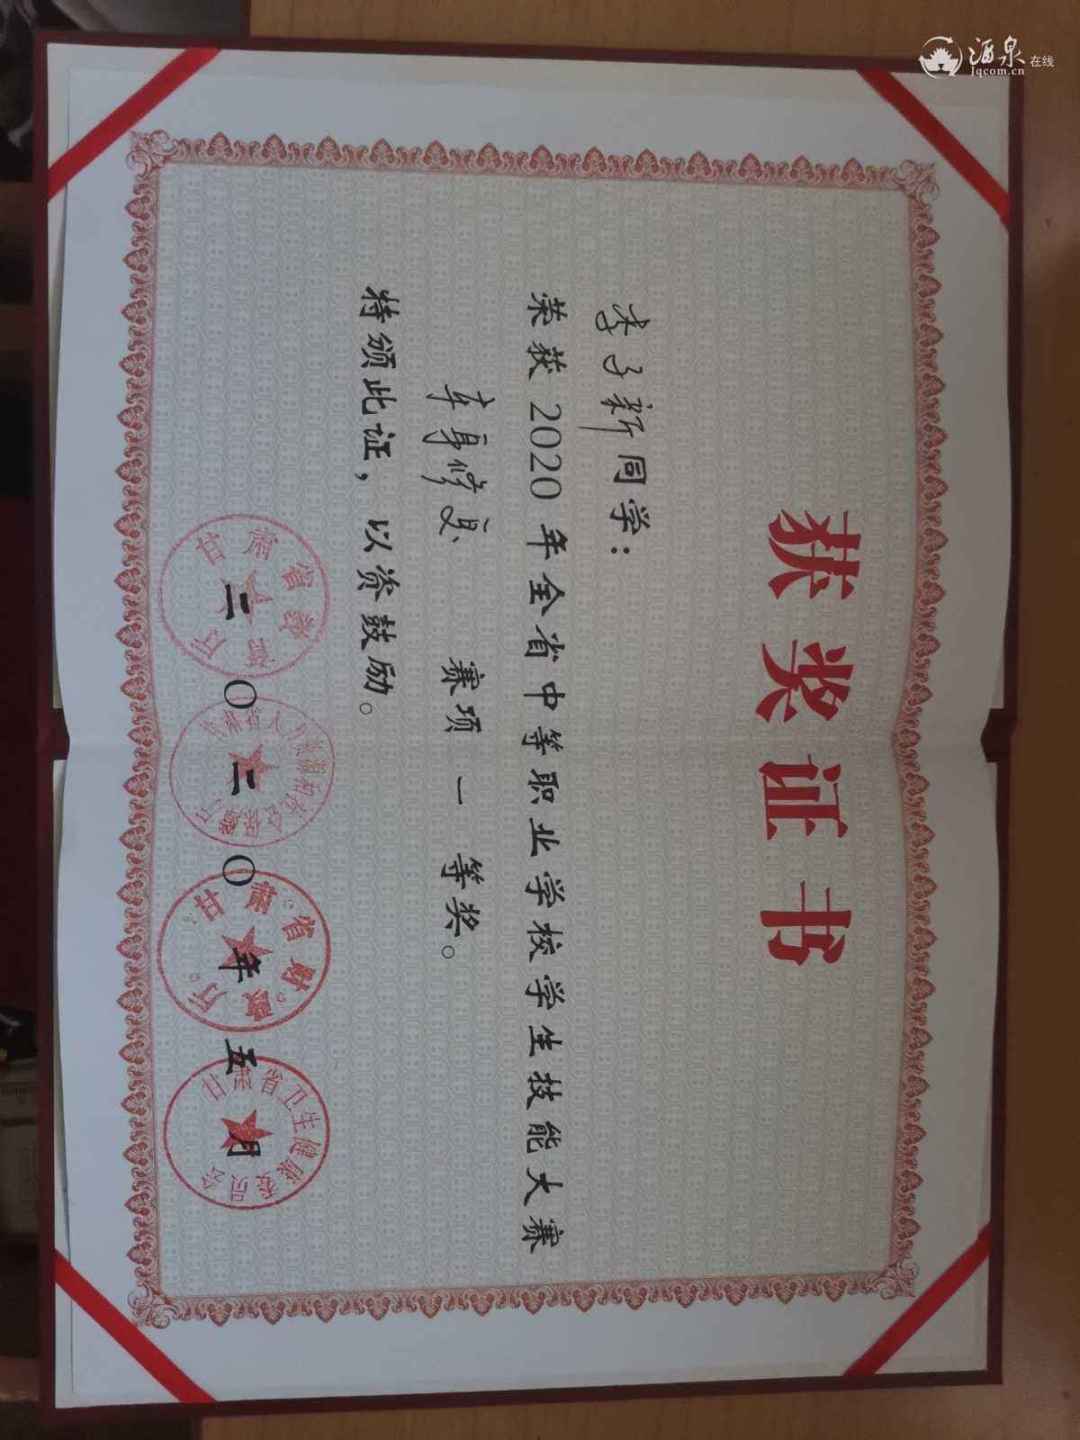 获奖证书
李子新同学：
荣获2020年全省中等职业学校学生技能大赛
车身修复 赛项 一 等奖。
特颁此证，以资鼓励。
二〇二〇年五月
甘肃省教育厅
甘肃省人力资源和社会保障厅
甘肃省财政厅
甘肃省卫生健康委员会
酒泉在线
Jqcom.cn